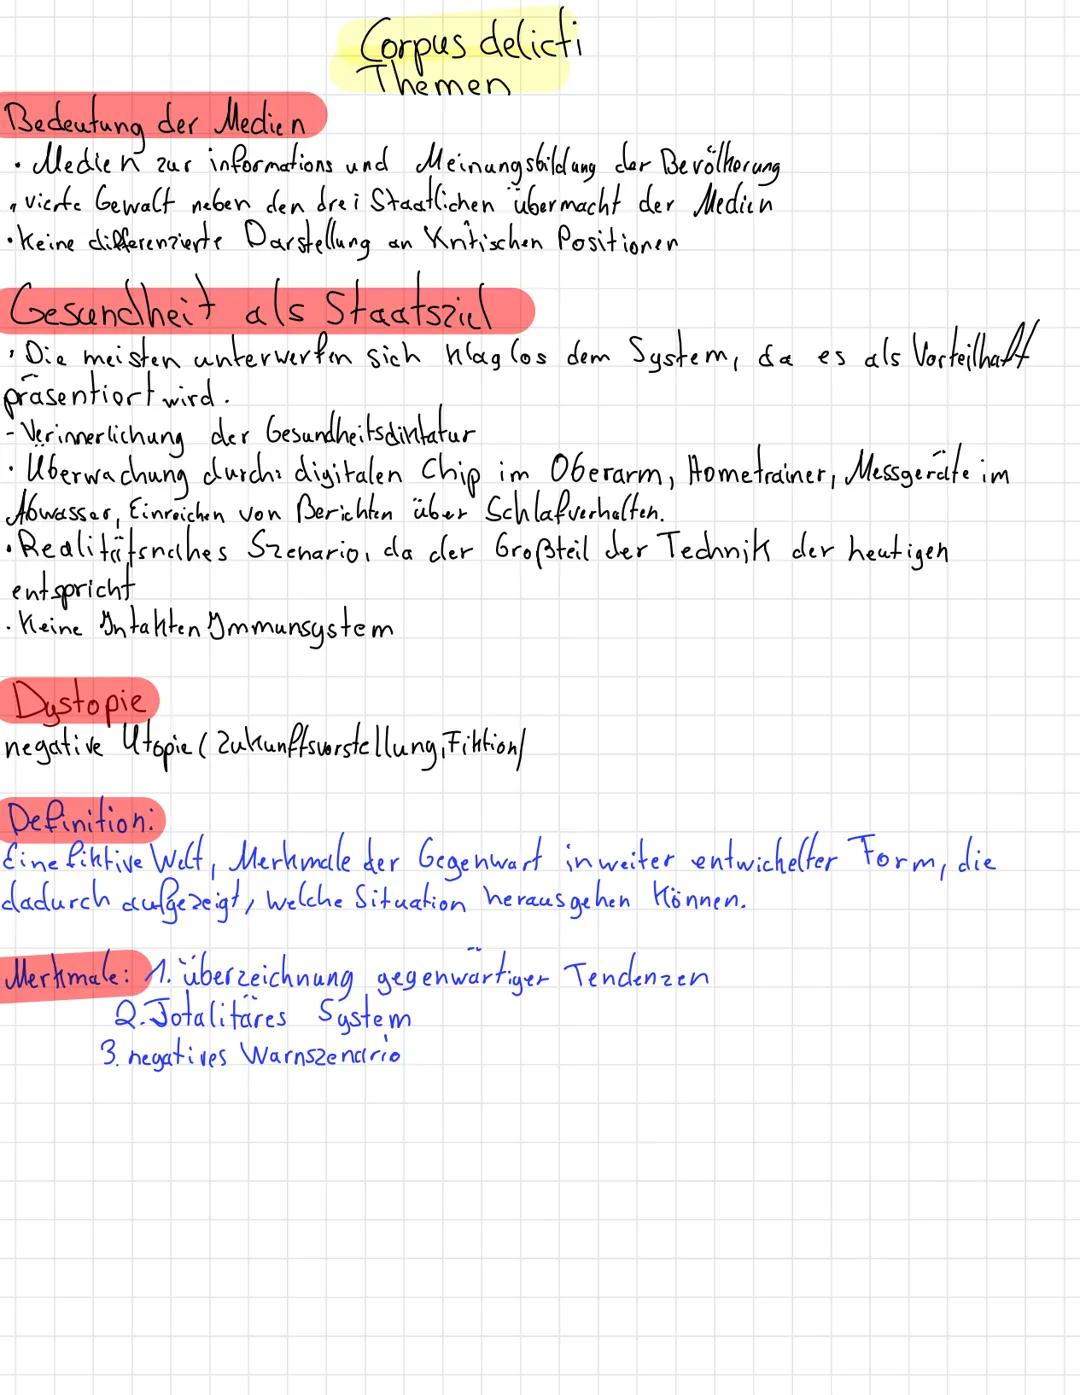 Corpus delicti
Themen
Bedeutung der Medien
• Medien zur informations und Meinungsbildung der Bevölkerung
• vierte Gewalt neben den drei Staatlichen übermacht der Medien
• Keine differenzierte Darstellung an Kritischen Positionen
Gesundheit als Staatsziel
• Die meisten unterwerfen sich klaglos dem System, da es als Vorteilhaft
präsentiert wird.
- Verinnerlichung der Gesundheitsdiktatur
• Überwachung durch: digitalen Chip im Oberarm, Hometrainer, Messgeräte im
Abwasser, Einreichen von Berichten über Schlafverhalten.
• Realitätsnahes Szenario, da der Großteil der Technik der heutigen
entspricht
• Keine Intakten Immunsystem
Dystopie
negative Utopie (Zukunftsvorstellung, Fiktion)
Definition:
Eine fiktive Welt, Merkmale der Gegenwart in weiter entwickelter Form, die
dadurch aufgezeigt, welche Situation herausgehen können.
Merkmale: 1. überzeichnung gegenwärtiger Tendenzen
2. Totalitäres System
3. negatives Warnszenario